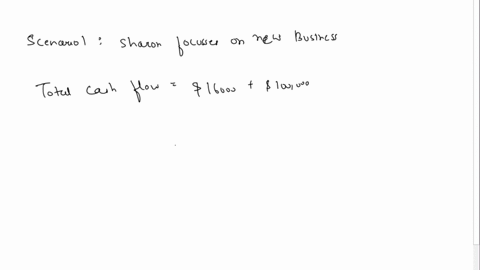 Scenario1 : Sharon focusses on new Business
Total cash flow = $16000 + $100,000